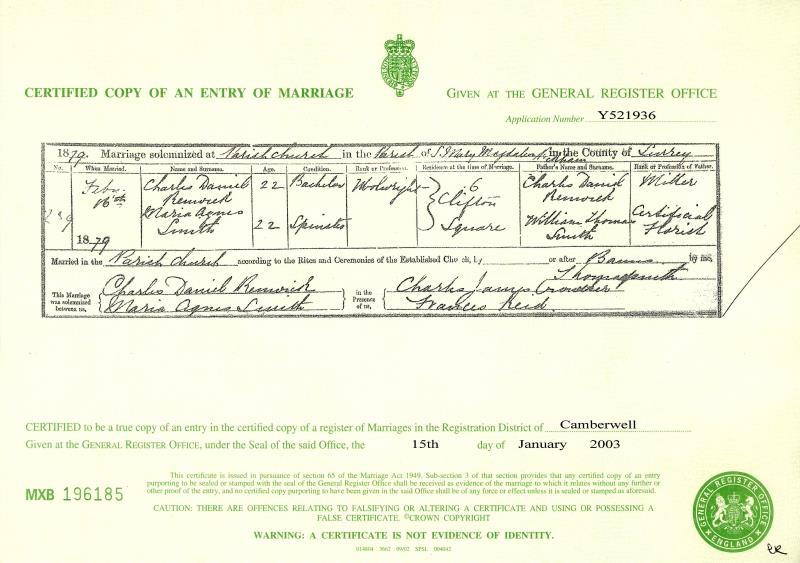 CERTIFIED COPY OF AN ENTRY OF MARRIAGE
GIVEN AT THE GENERAL REGISTER OFFICE
Application Number Y521936
1879. Marriage solemnized at Parish Church in the Parish of St Mary Magdalen Peckham in the County of Surrey
No. When Married. Name and Surname. Age. Condition. Rank or Profession. Residence at the time of Marriage. Father's Name and Surname. Rank or Profession of Father.
Febry 16th 1879 Charles Daniel Renwick 22 Bachelor 6 Clifton Square Charles David Renwick Miller
Maria Agnes Smith 22 Spinster William Thomas Smith Artificial Florist
Married in the Parish Church according to the Rites and Ceremonies of the Established Church, by or after Banns by me,
Thomas Smith
This Marriage was solemnized between us, Charles Daniel Renwick in the Presence of us, Charles James Crowther
Maria Agnes Smith Frances Reid.
CERTIFIED to be a true copy of an entry in the certified copy of a register of Marriages in the Registration District of Camberwell
Given at the GENERAL REGISTER OFFICE, under the Seal of the said Office, the 15th day of January 2003
This certificate is issued in pursuance of section 65 of the Marriage Act 1949. Sub-section 3 of that section provides that any certified copy of an entry
purporting to be sealed or stamped with the seal of the General Register Office shall be received as evidence of the marriage to which it relates without any further or
other proof of the entry, and no certified copy purporting to have been given in the said Office shall be of any force or effect unless it is sealed or stamped as aforesaid.
MXB 196185
CAUTION: THERE ARE OFFENCES RELATING TO FALSIFYING OR ALTERING A CERTIFICATE AND USING OR POSSESSING A
FALSE CERTIFICATE. ©CROWN COPYRIGHT
WARNING: A CERTIFICATE IS NOT EVIDENCE OF IDENTITY.
GENERAL REGISTER OFFICE ENGLAND